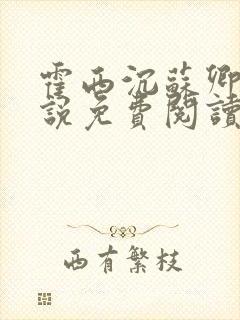 霍西沉蘇卿
說免費閱讀
西有繁枝